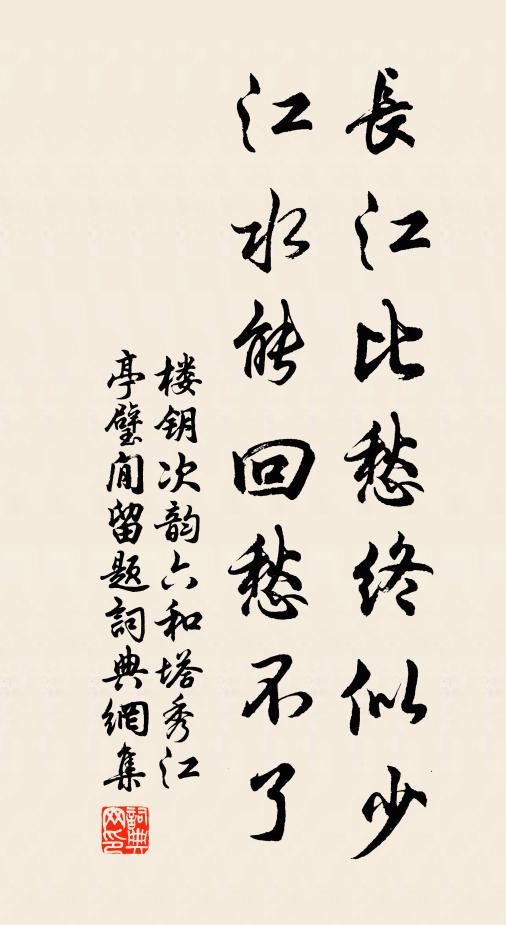 長江比愁終似少
江水能回愁不了
楼钥次韵六和塔秀江
亭壁间留题詞典網集
詞典
网印